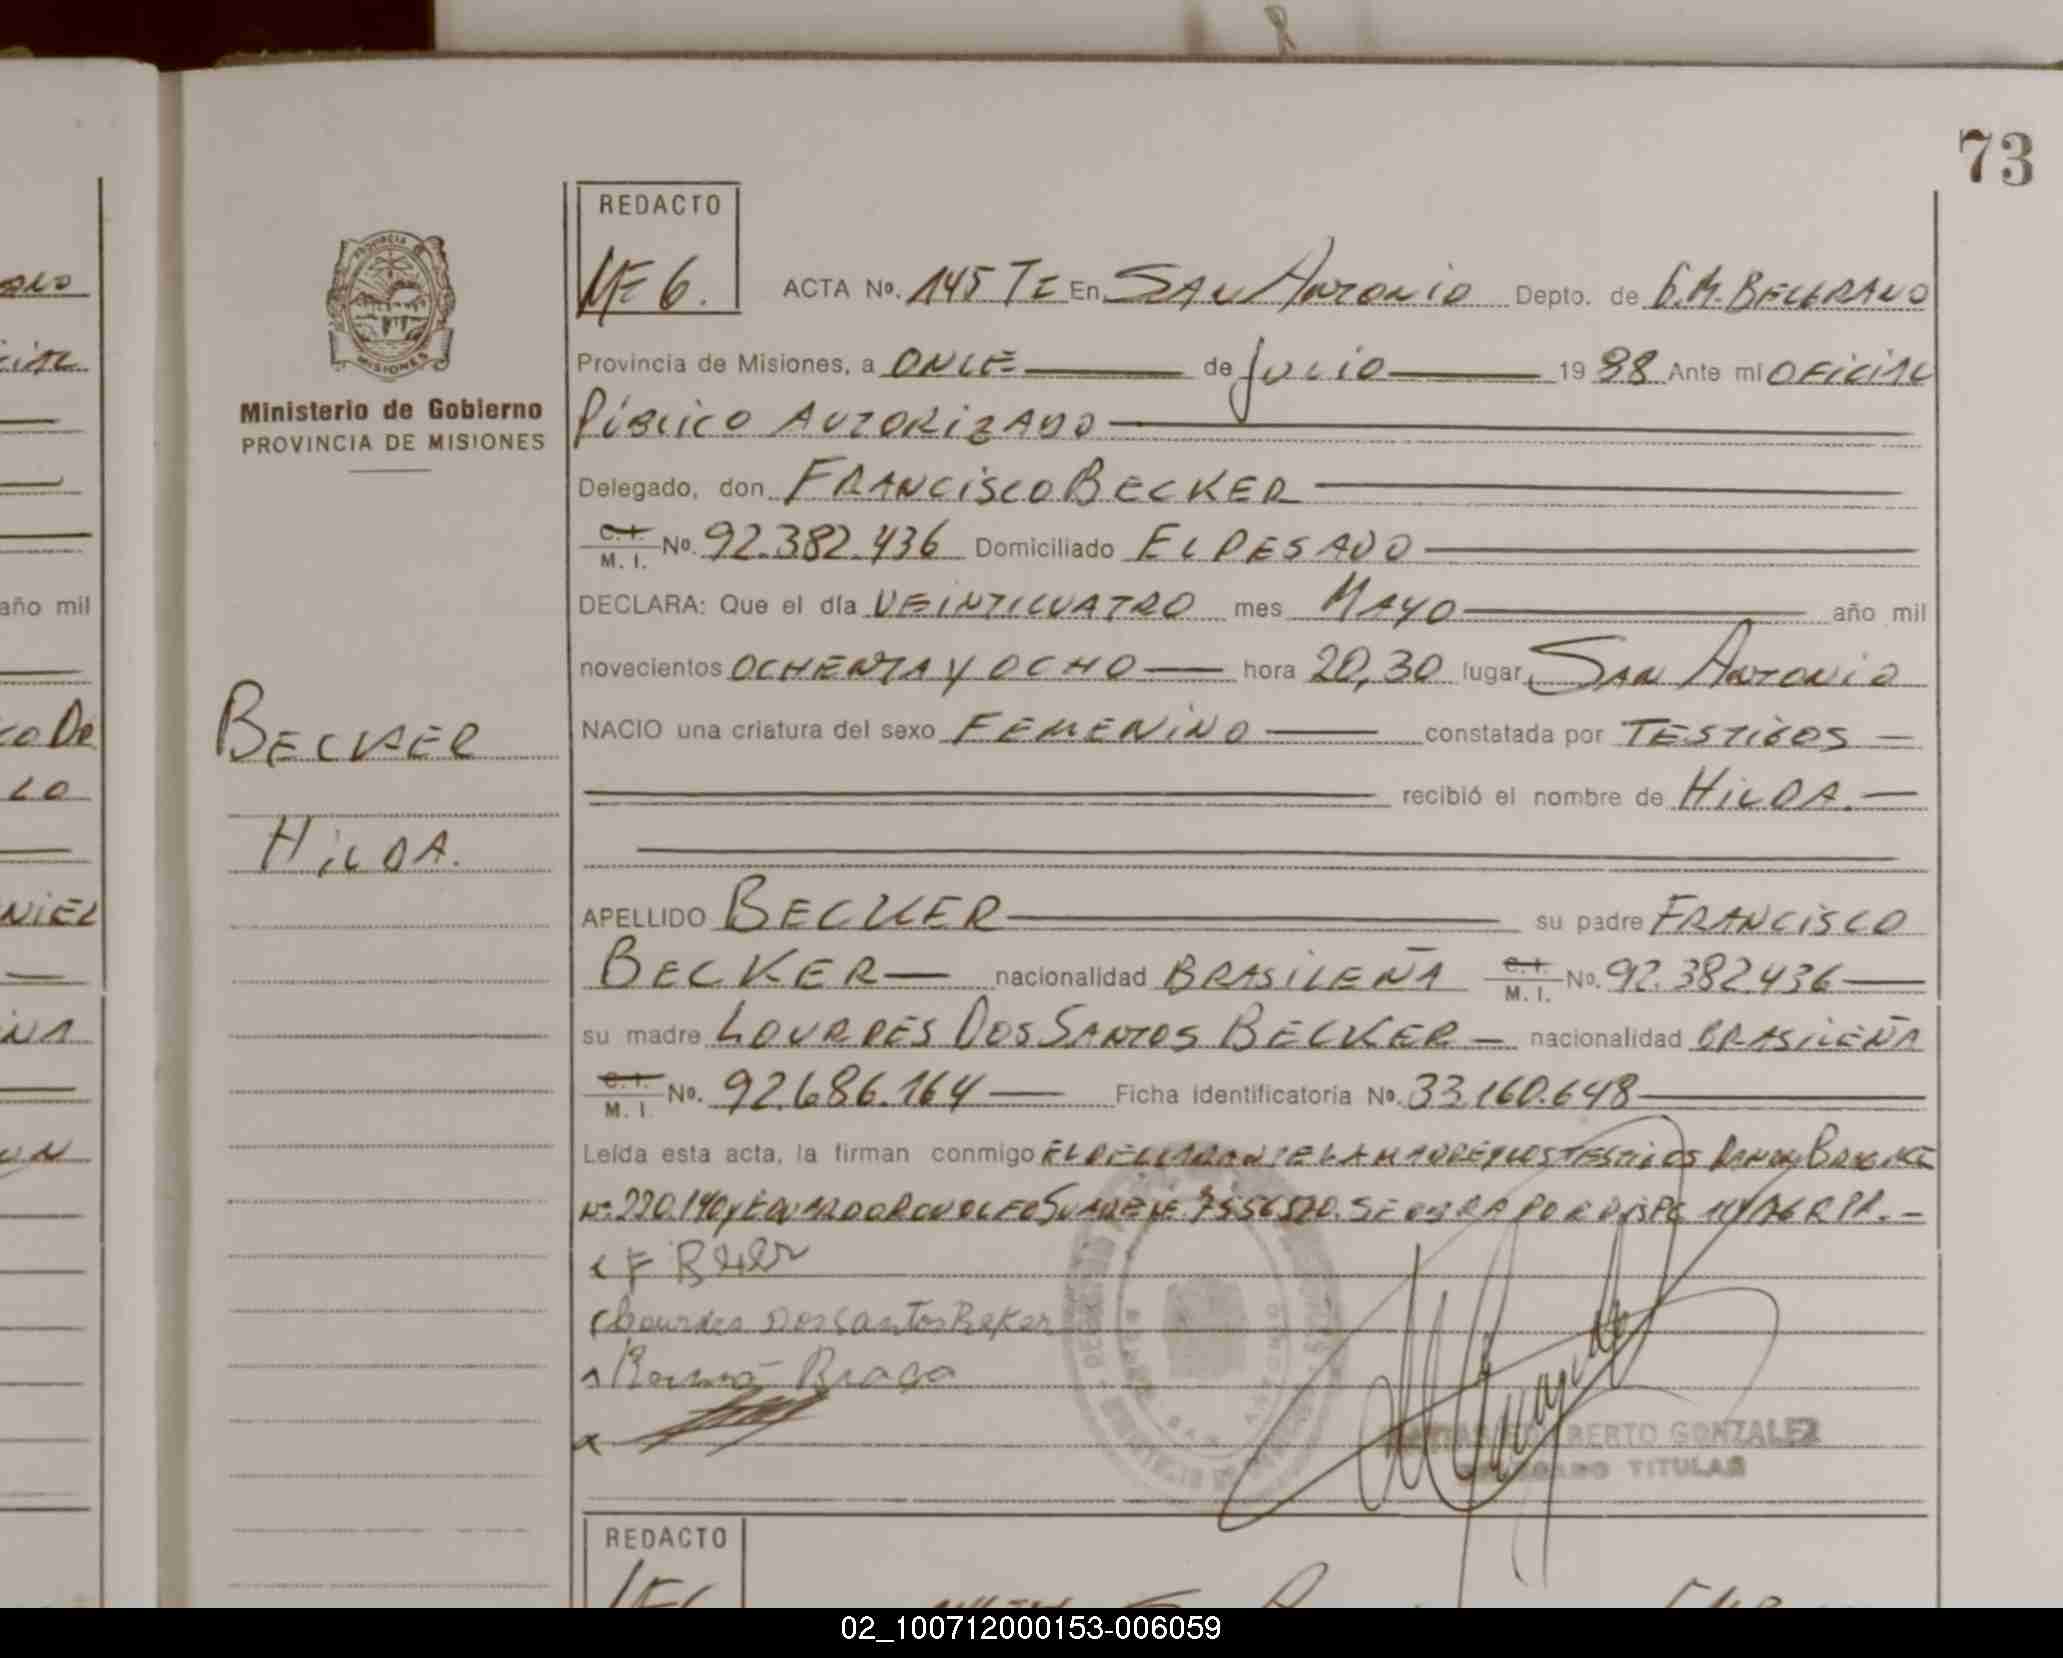 73
REDACTO
ME 6.
ACTA Nº. 145 TE En SAN ANTONIO Depto. de G.M. BELGRANO
Provincia de Misiones, a ONCE de JULIO 1988 Ante mi OFICIAL
PÚBLICO AUTORIZADO
Delegado, don FRANCISCO BECKER
C.I. M. I. Nº. 92.382.436 Domiciliado EL PESADO
DECLARA: Que el día VEINTICUATRO mes MAYO año mil
novecientos OCHENTA Y OCHO hora 20,30 lugar SAN ANTONIO
NACIO una criatura del sexo FEMENINO constatada por TESTIGOS
recibió el nombre de HILDA.
APELLIDO BECKER su padre FRANCISCO
BECKER nacionalidad BRASILEÑA C.I. M. I. Nº. 92.382.436
su madre LOURDES DOS SANTOS BECKER nacionalidad BRASILEÑA
C.I. M. I. Nº. 92.686.164 Ficha identificatoria Nº. 33.160.648
Leída esta acta, la firman conmigo EL DECLARANTE LA MADRE Y LOS TESTIGOS RAMON BRAGA
Nº 220.140 Y SE OBRA POR DISP
Lourdes Dos Santos Beker
Braga
BERTO GONZALEZ
TITULAR
PROVINCIA DE
MISIONES
Ministerio de Gobierno
PROVINCIA DE MISIONES
BECKER
HILDA.
año mil
NIEL
REDACTO
02_100712000153-006059